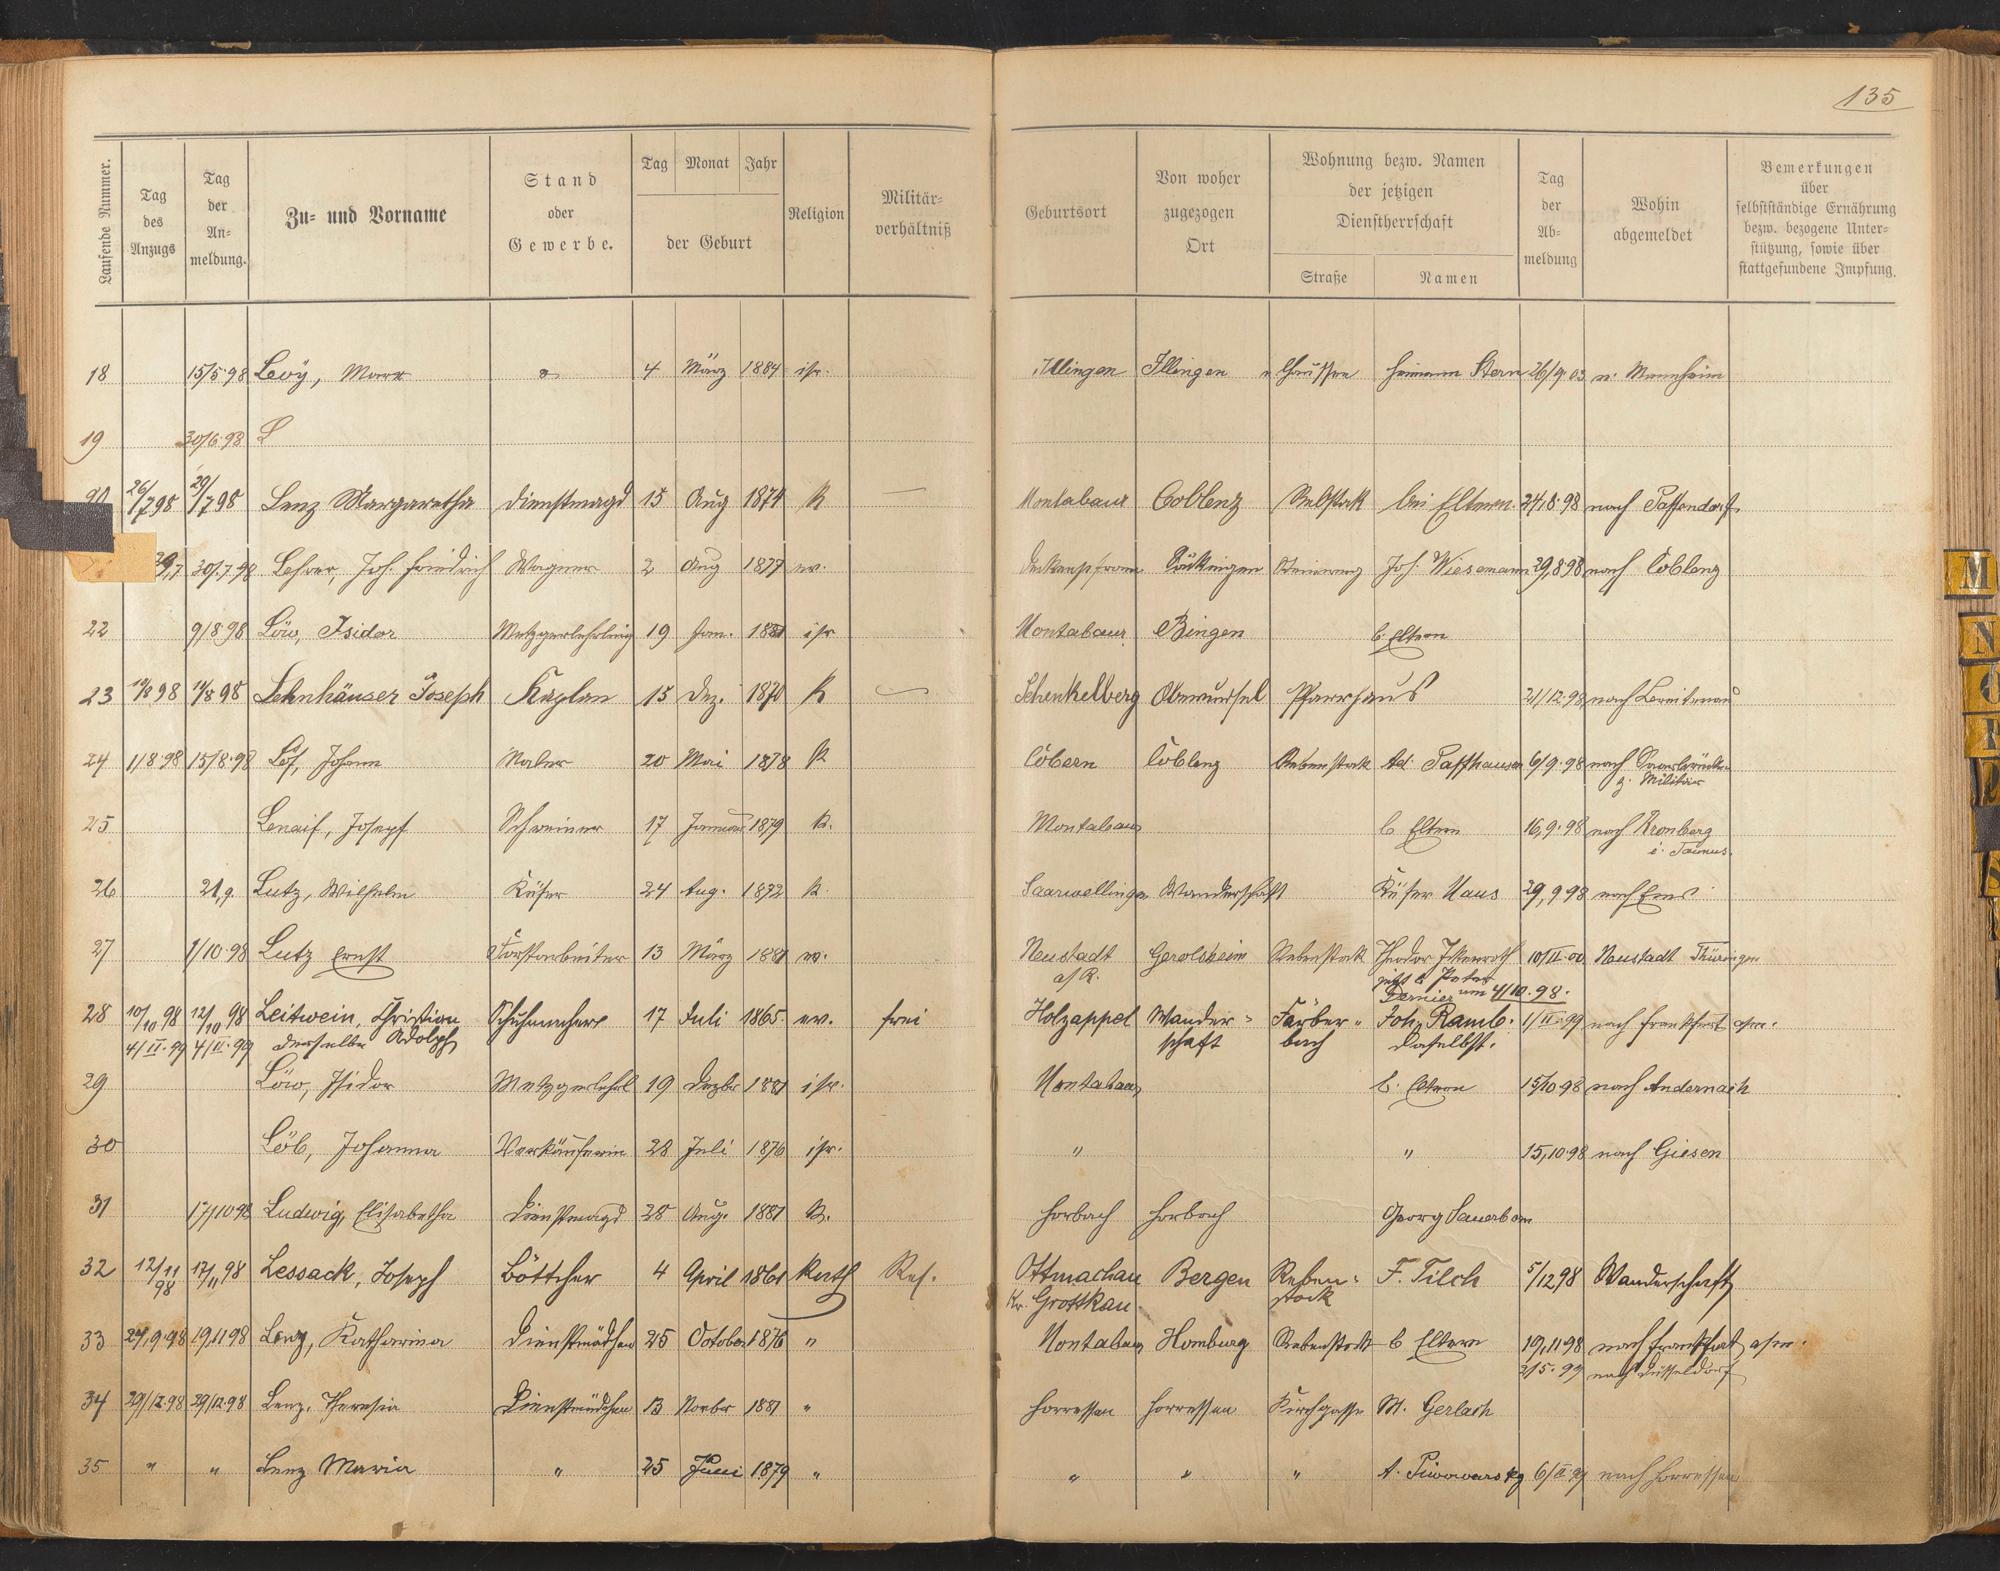 135
Laufende Nummer.
Tag des Anzugs
Tag der Anmeldung.
Zu- und Vorname
Stand oder Gewerbe.
Tag Monat Jahr
der Geburt
Religion
Militärverhältniß
Geburtsort
Von woher zugezogen Ort
Wohnung bezw. Namen der jetzigen Dienstherrschaft
Straße Namen
Tag der Abmeldung
Wohin abgemeldet
Bemerkungen über selbstständige Ernährung bezw. bezogene Unterstützung, sowie über stattgefundene Impfung.
18 15/5 98 Levÿ, Marx 4 März 1884 isr. Illingen Illingen Stern 26/9 03 n. Mannheim
19 30/6.98 L
20 26/7 98 29/7 98 Lenz Margaretha Dienstmagd 15 Aug 1874 K — Montabaur Coblenz Rebstock bei Eltern 24/8.98 nach
29/7 30/7.98 Lehrer, Joh. Friedrich Wagner 2 Aug 1877 ev. Steinweg Joh. Wiesemann 29,8 98 nach Coblenz
22 9/8 98 Löw, Isidor Metzgerlehrling 19 Jan. 1881 isr Montabaur Bingen b. Eltern
23 98 98 Lehnhäuser Joseph Kaplan 15 Dez. 1870 K Schenkelberg Oberursel Pfarrhaus 21/12.98 nach
24 1/8 98 15/8.98 Löf, Johann Maler 20 Mai 1878 K Cobern Coblenz Rebenstock Ad. 6/9.98 nach Saarbrücken
z. Militär
25 Joseph Schreiner 17 Januar 1879 K. Montabaur b Eltern 16,9.98 nach Kronberg
i. Taunus.
26 21,9. Lutz, Wilhelm Küfer 24 Aug. 1872 K. Saarwellingen Wanderschaft Küfer Haus 29,9 98 nach Ems
27 1/10.98 Lutz Ernst Forstarbeiter 13 März 1881 ev. Neustadt Gerolsheim Rebenstock Theodor 10/II.00 Neustadt Thüringen
a/R. jetzt b Peter
Dernier um 4/10.98.
28 10/10 98 12/10 98 Leitwein, Christian Schuhmacher 17 Juli 1865 ev. frei Holzappel Wander- Färber- Joh. Ramb. 1/II.99 nach Frankfurt a/m.
4/II.99 4/II.99 derselbe Adolph schaft bach daselbst.
29 Löw, Isidor Metzgerlehrl 19 Dezbr 1881 isr. Montabaur b. Eltern 15/10 98 nach Andernach
30 Löb, Johanna Verkäuferin 28 Juli 1876 isr. " " 15,10.98 nach Giesen
31 17/10 98 Ludwig, Elisabetha Dienstmagd 28 Aug. 1881 K. Horbach Horbach Georg Sauerborn
32 12/11 98 17/11 98 Lessack, Joseph Böttcher 4 April 1861 Kath Res. Ottmachau Bergen Reben- F. Tilch 5/12 98 Wanderschaft
Kr. Grottkau stock
33 27,9.98 19,11 98 Lenz, Katharina Dienstmädchen 25 October 1876 " Montabaur Homburg Rebenstock b Eltern 19,11 98 nach Frankfurt a/m.
2/5.99 nach Düsseldorf
34 29/12.98 29/12.98 Lenz, Theresia Dienstmädchen 13 Novbr 1881 " Horressen Horressen Kirchgasse M. Gerlach
35 " " Lenz Maria " 25 Juni 1879 " " " " A. Piwowarsky 6/II.99 nach Horressen
M
N
O